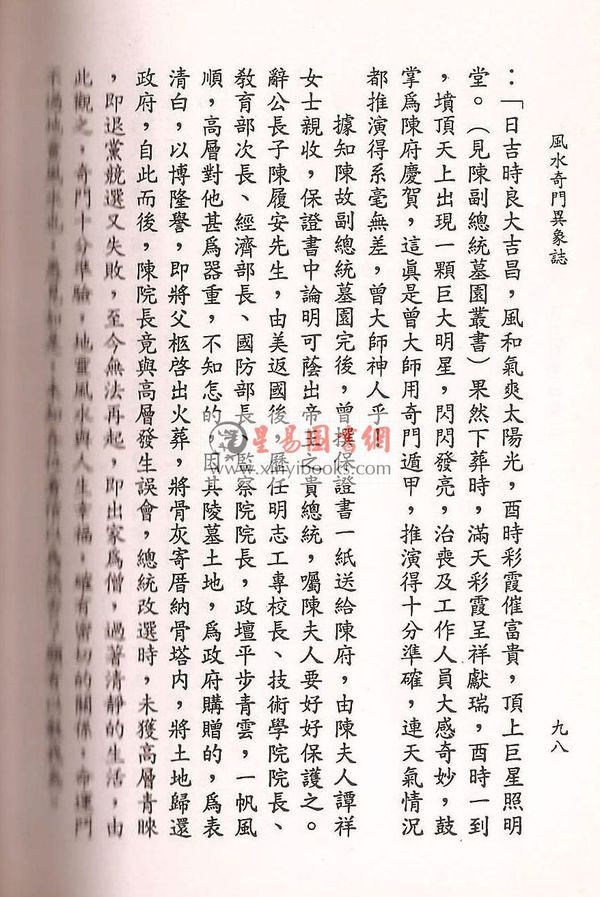 風水奇門異象誌
九八
：「日吉時良大吉昌，風和氣爽太陽光，酉時彩霞催富貴，頂上巨星照明
堂。（見陳副總統墓園叢書）果然下葬時，滿天彩霞呈祥獻瑞，酉時一到
，墳頂天上出現一顆巨大明星，閃閃發亮，治喪及工作人員大感奇妙，鼓
掌爲陳府慶賀，這眞是曾大師用奇門遁甲，推演得十分準確，連天氣情況
都推演得系毫無差，曾大師神人乎！
據知陳故副總統墓園完後，曾撰保證書一紙送給陳府，由陳夫人譚祥
女士親收，保證書中論明可蔭出帝王之貴總統，囑陳夫人要好好保護之。
辭公長子陳履安先生，由美返國後，歷任明志工專校長、技術學院院長、
敎育部次長、經濟部長、國防部長、監察院院長，政壇平步青雲，一帆風
順，高層對他甚爲器重，不知怎的，因其陵墓土地，爲政府購贈的，爲表
清白，以博隆譽，即將父柩啓出火葬，將骨灰寄厝納骨塔內，將土地歸還
政府，自此而後，陳院長竟與高層發生誤會，總統改選時，未獲高層青睞
，即退黨競選又失敗，至今無法再起，即出家爲僧，過著清靜的生活，由
此觀之，奇門十分準驗，地靈風水與人生幸福，確有密切的關係，命運門
星易图书網
www.xinyibooks.com